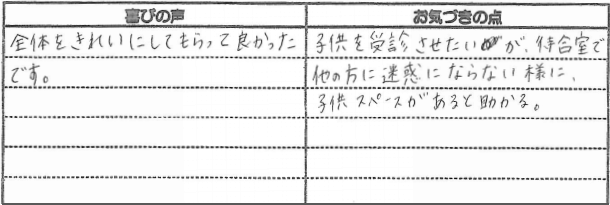 喜びの声
全体をきれいにしてもらって良かった
です。
お気づきの点
子供を受診させたいが、待合室で
他の方に迷惑にならない様に、
子供スペースがあると助かる。